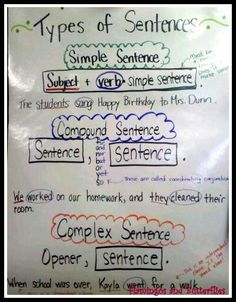 Types of Sentences
Simple Sentence
Subject + verb = simple sentence.
The students sang Happy Birthday to Mrs. Dunn.
Compound Sentence
for
and
nor
but
or
yet
so
Sentence, sentence.
these are called coordinating conjunctions
We worked on our homework, and they cleaned their
room.
Complex Sentence
Opener, sentence.
When school was over, Kayla went for a walk.
Flamingos and Butterflies